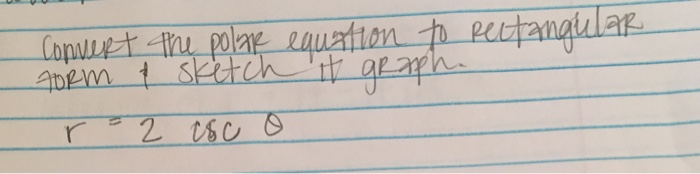 Convert the polar equation to Rectangular
form & sketch it graph.
r = 2 csc θ